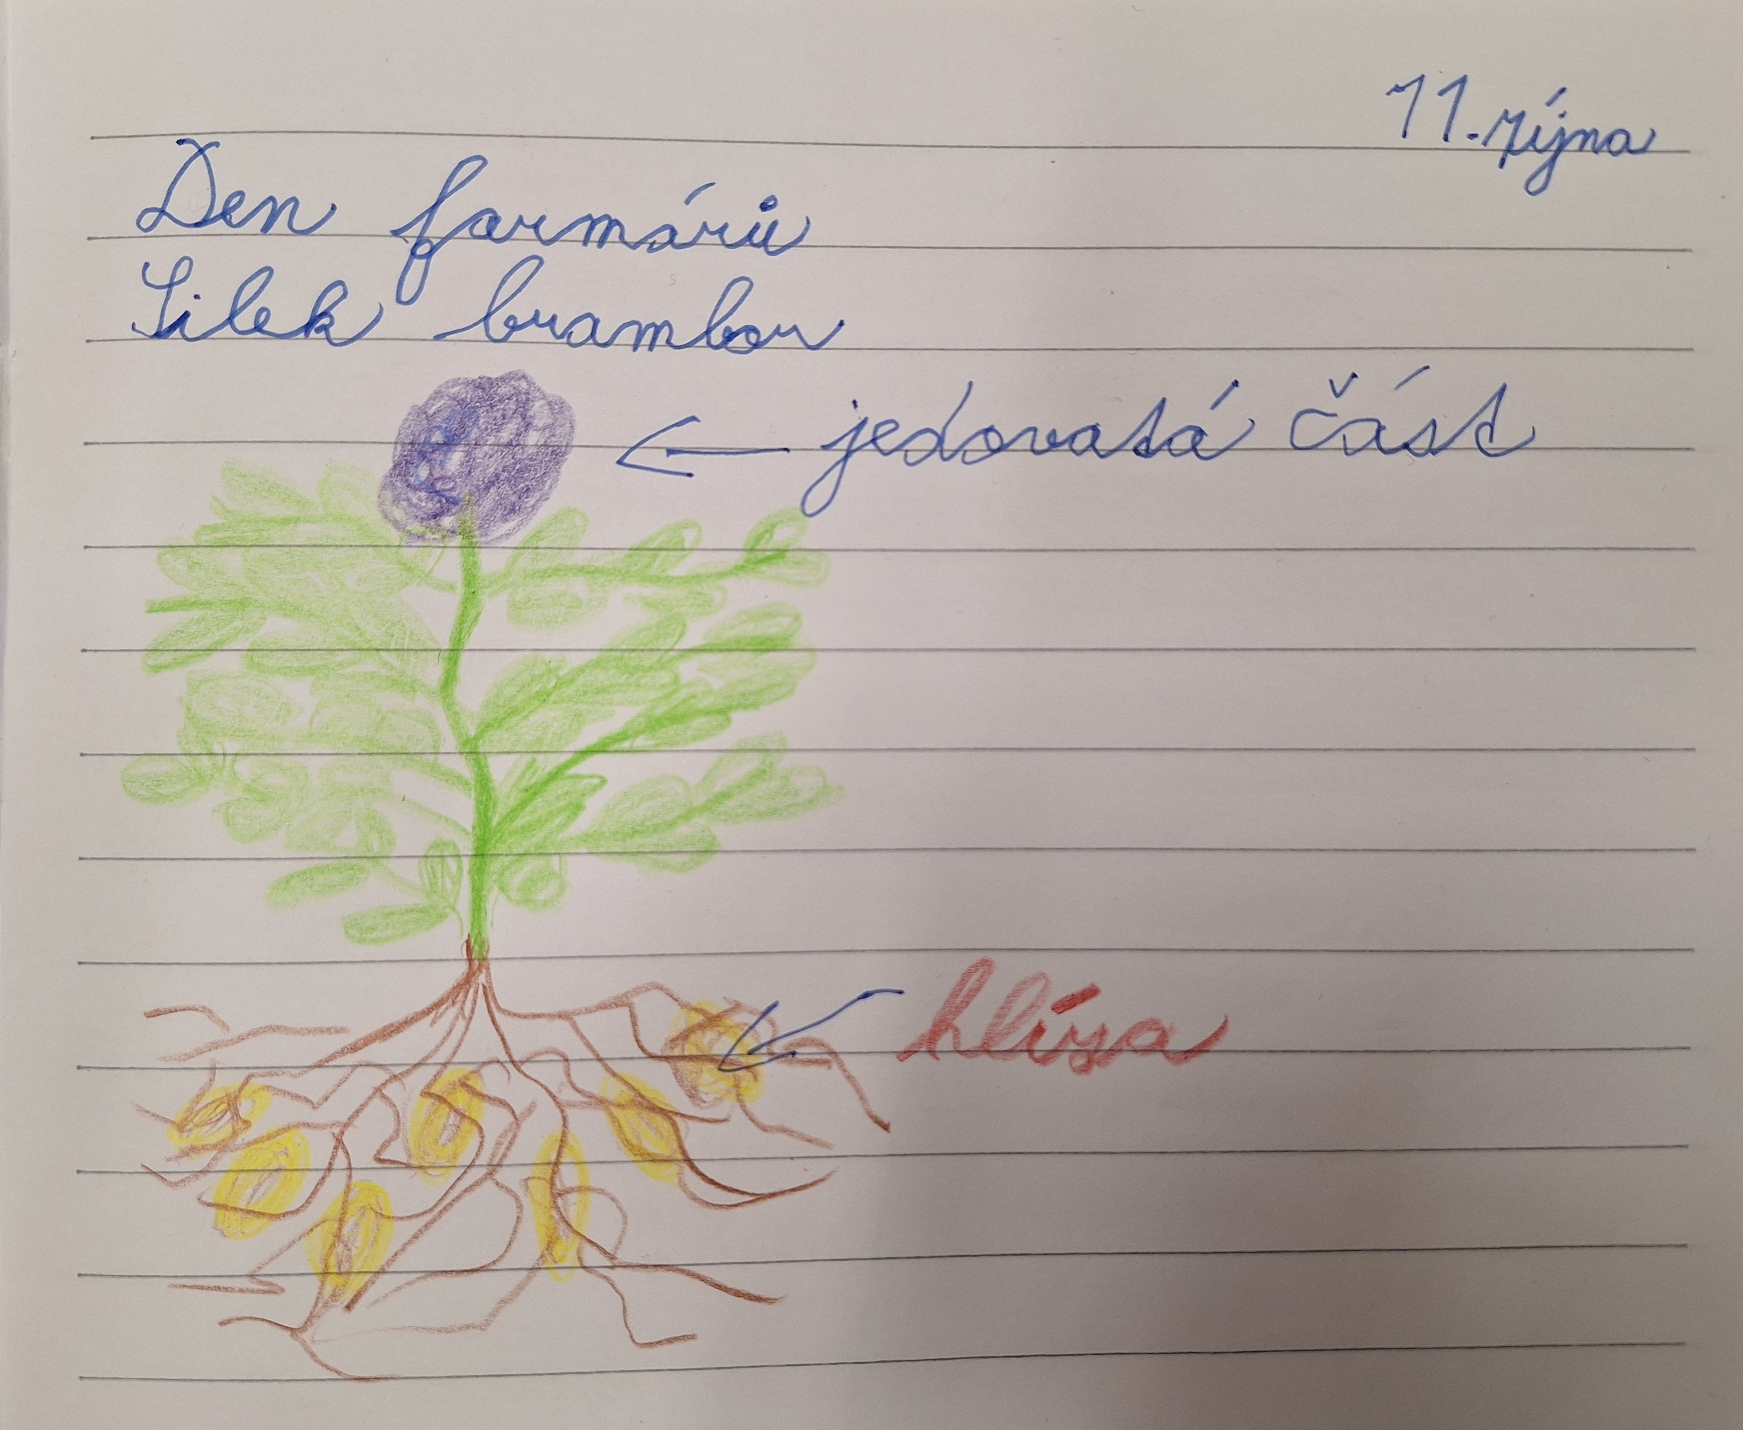 11. října
Den farmářů
Lilek brambor
jedovatá část
hlíza